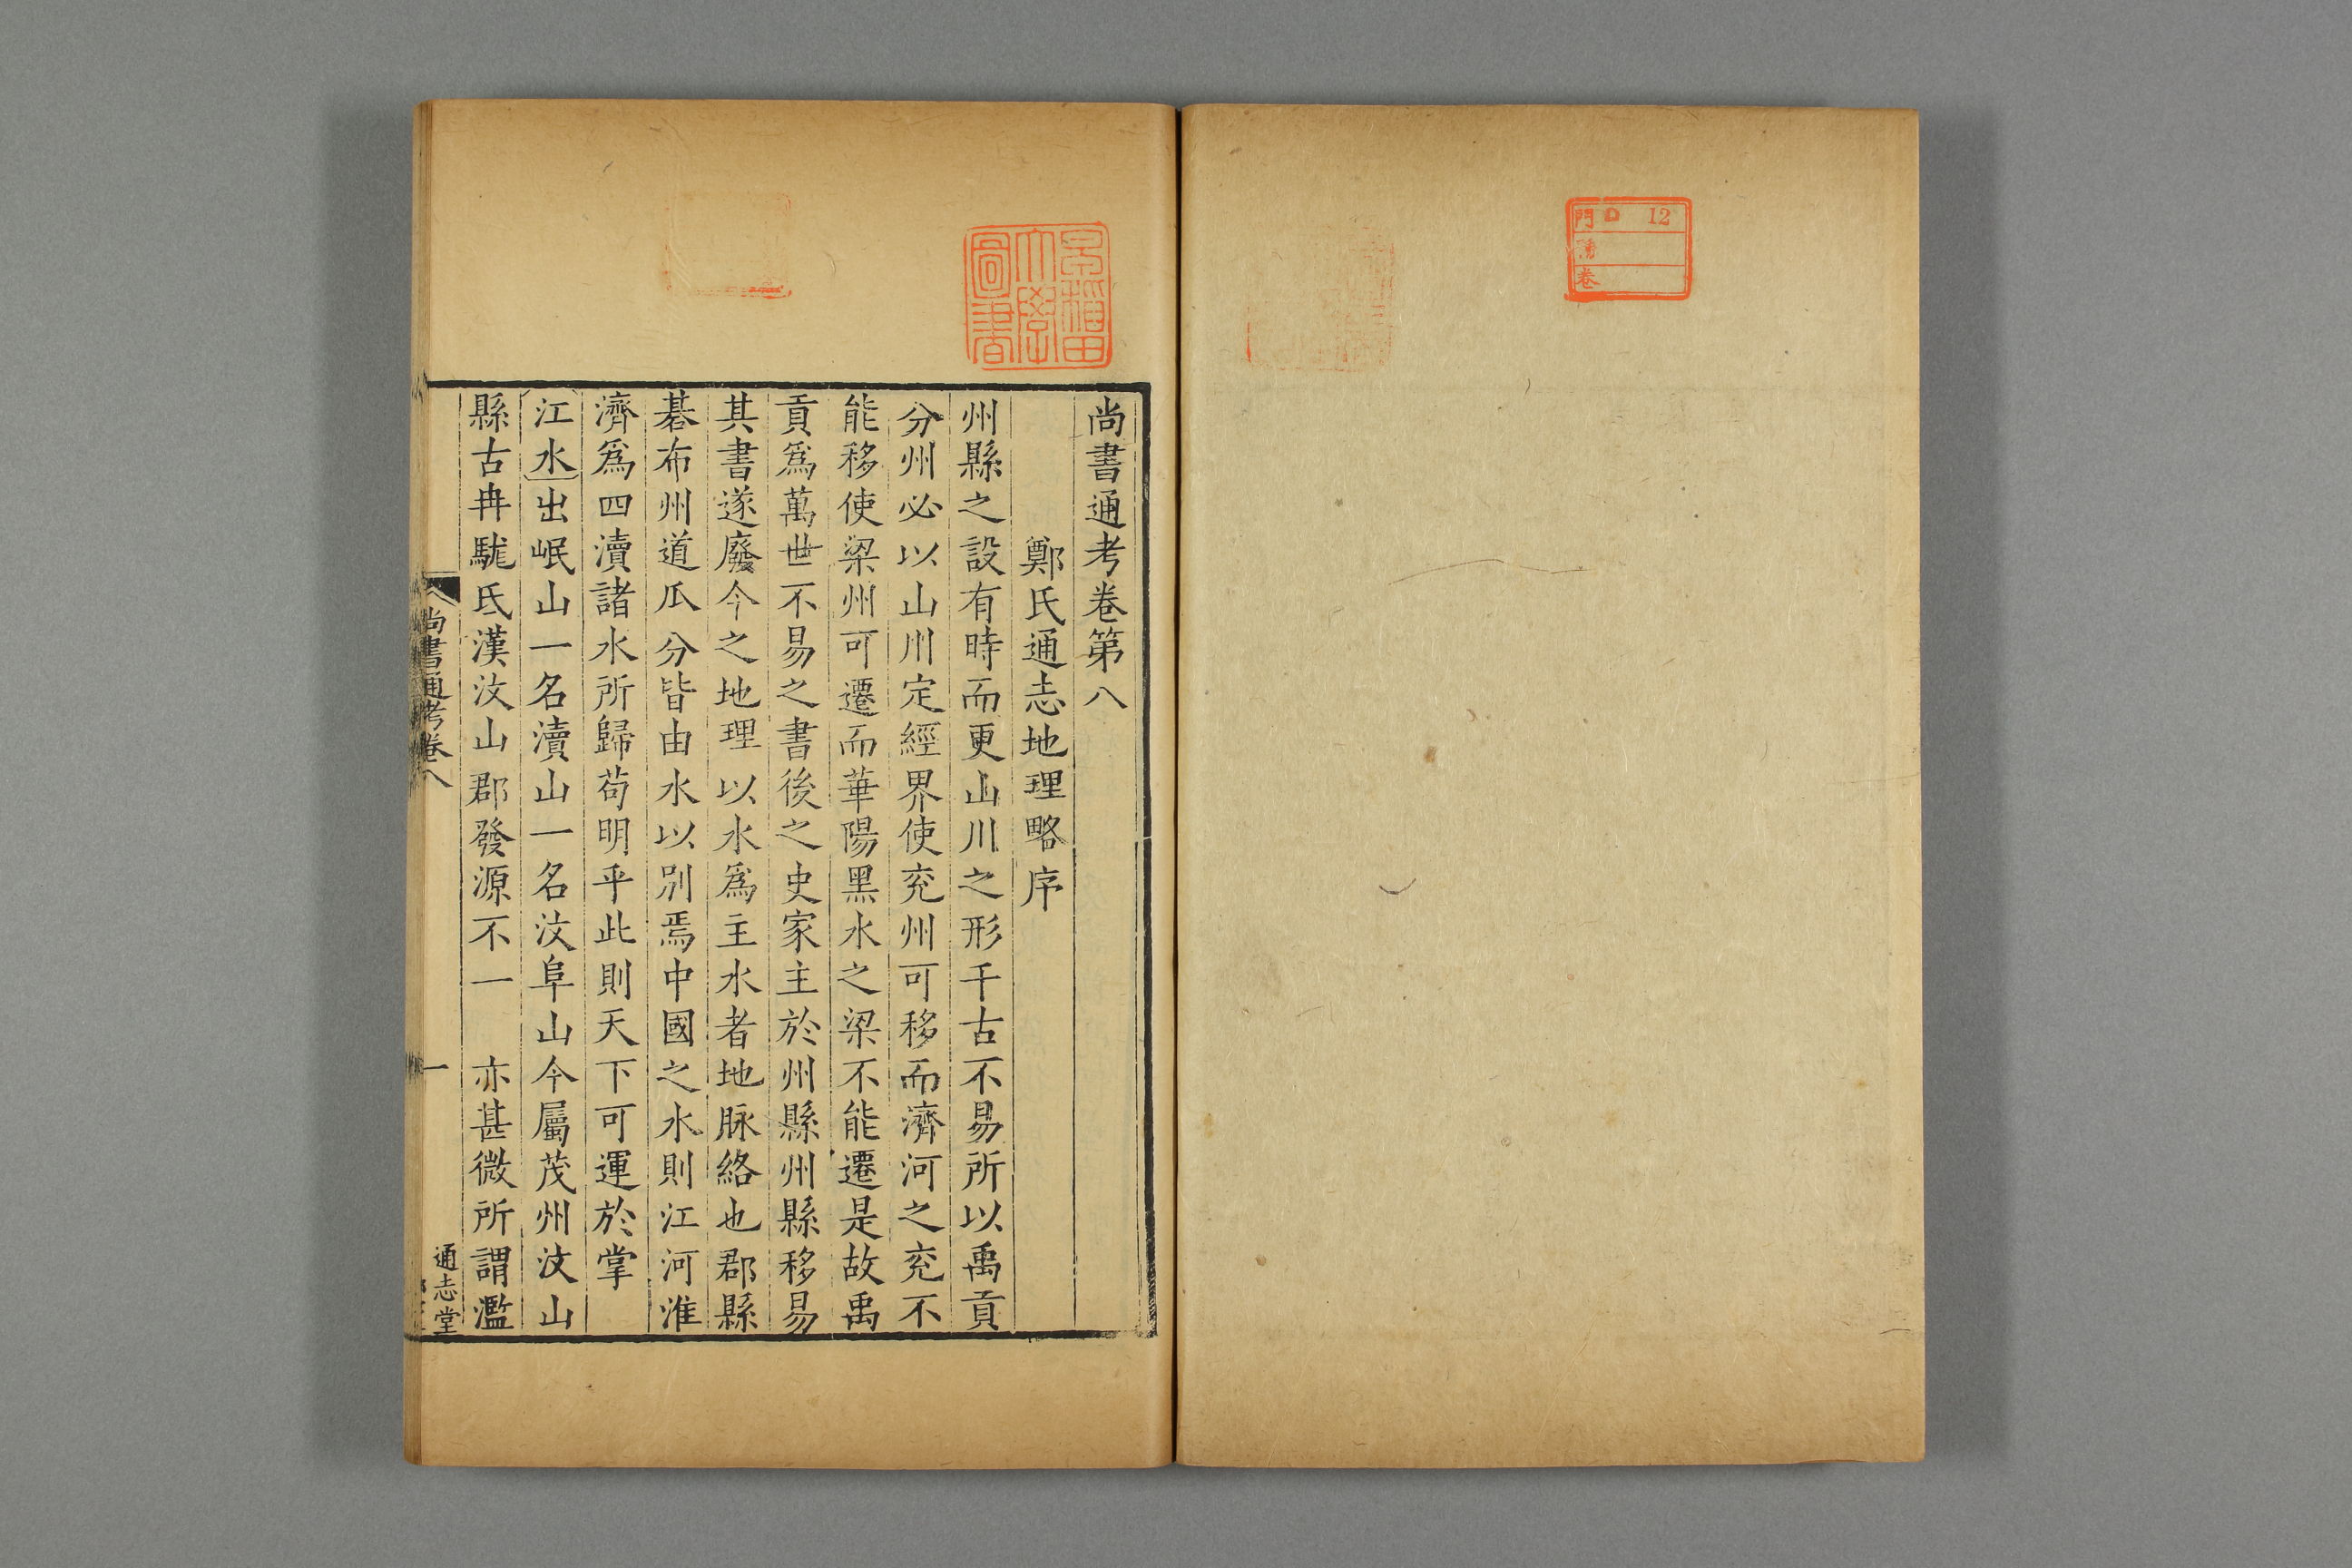 門 D 12
卷
早稲田
大學
圖書
尚書通考卷第八
鄭氏通志地理略序
州縣之設有時而更山川之形千古不易所以禹貢
分州必以山川定經界使兖州可移而濟河之兖不
能移使梁州可遷而華陽黑水之梁不能遷是故禹
貢爲萬世不易之書後之史家主於州縣州縣移易
其書遂廢今之地理以水爲主水者地脉絡也郡縣
碁布州道瓜分皆由水以别焉中國之水則江河淮
濟爲四瀆諸水所歸苟明乎此則天下可運於掌
江水出岷山一名瀆山一名汶阜山今屬茂州汶山
縣古冉駹氏漢汶山郡發源不一 亦甚微所謂濫
尚書通考卷八
一
通志堂